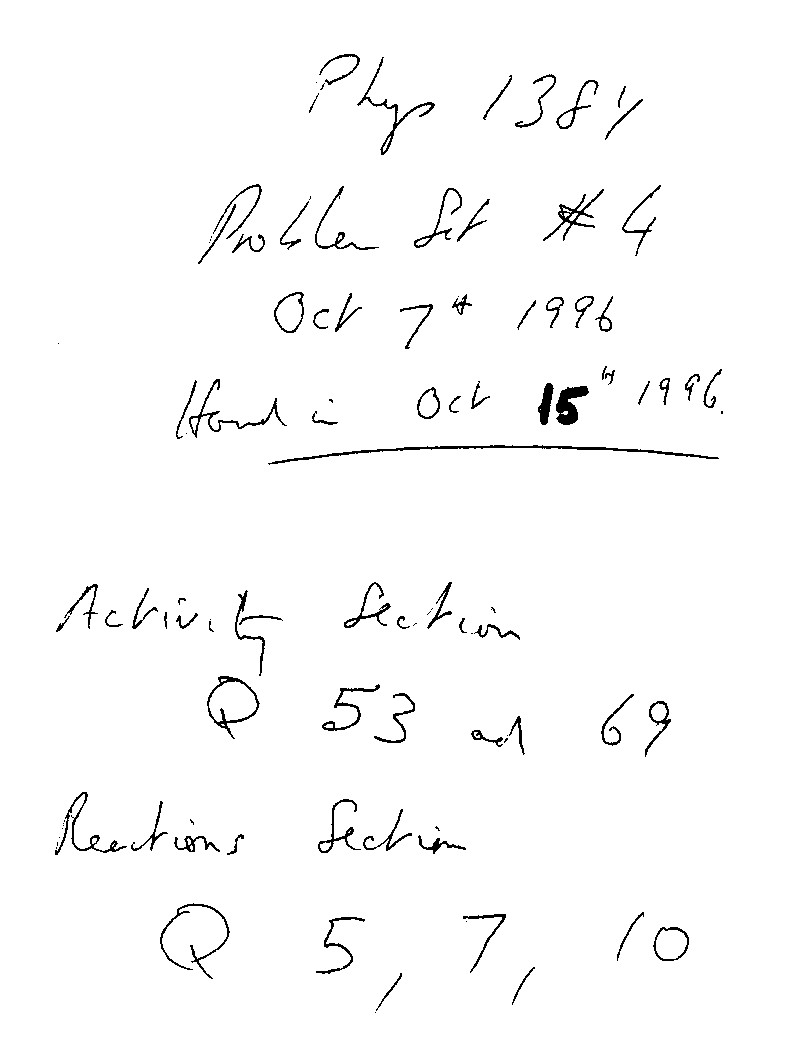 Phys 1384
Problem Set # 4
Oct 7th 1996
Hand in Oct 15th 1996.
Activity Section
Q 53 and 69
Reactions Section
Q 5, 7, 10